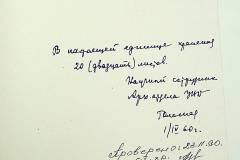 В настоящей единице хранения
20 (двадцать) листов.
Научный сотрудник
Арх. отдела
1/IV 60г.
Проверено: 23.11.90.